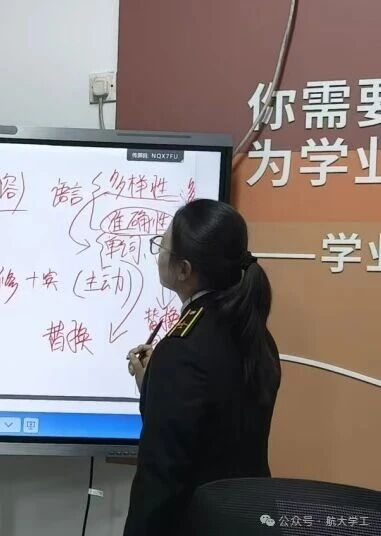 传屏码: NQX7FU
你需要
为学业
语言 多样性
准确性
单词、
——学业
修+实 (主动)
替换 替换
公众号 · 航大学工